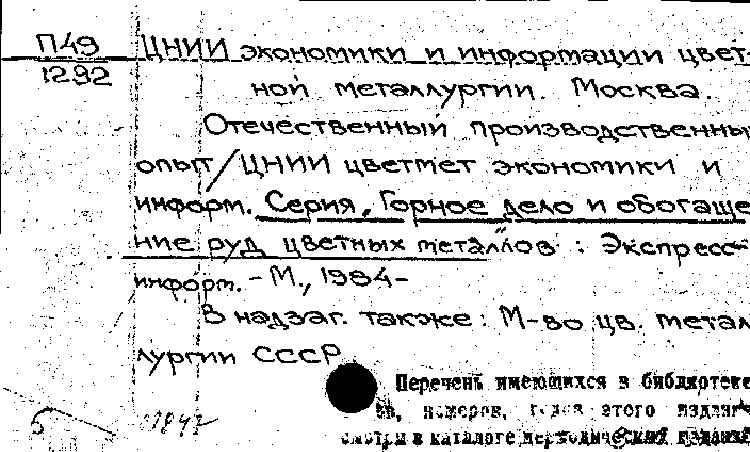 П49 ЦНИИ экономики и информации цвет-
1292 ной металлургии. Москва.
Отечественный производственный
опыт/ЦНИИ цветмет экономики и
информ. Серия, Горное дело и обогаще
ние руд цветных металлов" : Экспресс-
информ. - М., 1984-
В надзаг. также: М-во цв. метал
лургии СССР
Перечень имеющихся в библиотеке
номеров, этого издан
смотри в каталоге периодических изданий